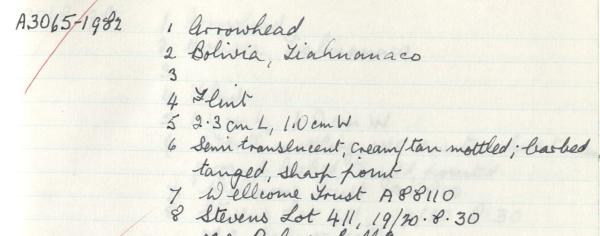 A3065-1982 1 Arrowhead
2 Bolivia, Tiahuanaco
3
4 Flint
5 2.3 cm L, 1.0 cm W
6 Semi translucent, cream/tan mottled; barbed
tanged, sharp point
7 Wellcome Trust A88110
8 Stevens Lot 411, 19/20.8.30